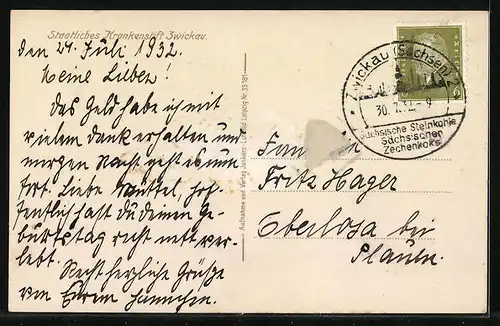 Staatliches Krankenstift Zwickau.
den 29. Juli 1932.
Meine Lieben!
Das Geld habe ich mit
vielem dank erhalten und
morgen Nacht geht es nun
fort. Liebe Muttel, hof-
fentlich hast du deinen Ge-
burtstag recht nett ver-
lebt.
Recht herzliche Grüße
von Eurem Hannchen.
Aufnahme und Verlag Nr. 35181
Zwickau (Sachsen) 2
30.7.32. - 9
Sächsische Steinkohle
Sächsischen
Zechenkoks
Familie
Fritz Hager
Oberlosa bei
Plauen.